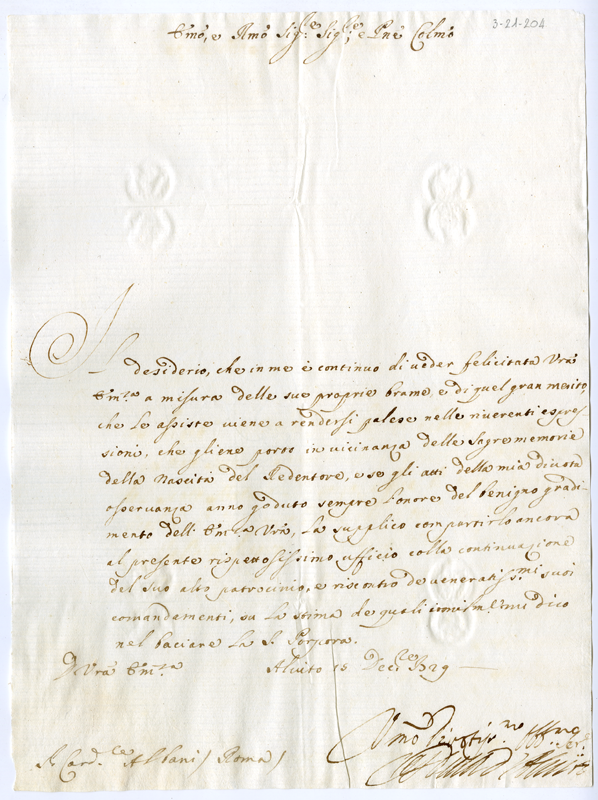 3-21-204
Emo, e Rmo Sig.re Sig.re, e Pne Colmo
Il
desiderio, che in me è continuo di veder felicitata Vra
Em.za a misura delle sue proprie brame, e di quel gran merito,
che Le assiste viene a rendersi palese nelle riverenti espres-
sioni, che gliene porto in vicinanza delle Sagre memorie
della Nascita del Redentore, e se gli atti della mia divota
osservanza anno goduto sempre l'onore del benigno gradi-
mento dell'Em.za Vra, La supplico compartirlo ancora
al presente rispettosissimo ufficio colla continuazione
del suo alto patrocinio, e riscontro de veneratiss.mi suoi
comandamenti, su La stima de quali mi dico
nel baciare La S. Porpora.
D Vra Em.za Alvito 15 Dec.re
S. Card.le Albani / Roma /